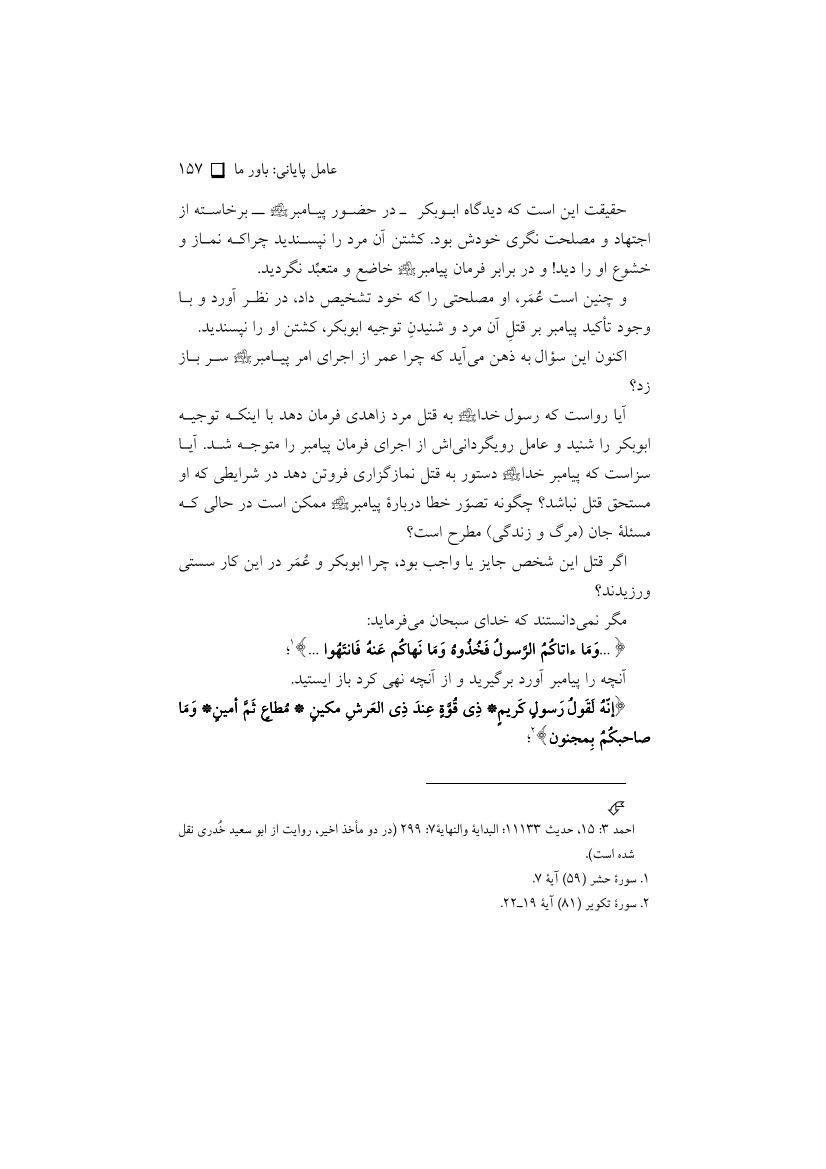 عامل پایانی: باور ما ❑ ۱۵۷
حقیقت این است که دیدگاه ابوبکر ـ در حضور پیامبرﷺ ـ برخاسته از
اجتهاد و مصلحت نگری خودش بود. کشتن آن مرد را نپسندید چراکه نماز و
خشوع او را دید! و در برابر فرمان پیامبرﷺ خاضع و متعبِّد نگردید.
و چنین است عُمَر، او مصلحتی را که خود تشخیص داد، در نظر آورد و با
وجود تأکید پیامبر بر قتلِ آن مرد و شنیدنِ توجیه ابوبکر، کشتن او را نپسندید.
اکنون این سؤال به ذهن می‌آید که چرا عمر از اجرای امر پیامبرﷺ سر باز
زد؟
آیا رواست که رسول خداﷺ به قتل مرد زاهدی فرمان دهد با اینکه توجیه
ابوبکر را شنید و عامل رویگردانی‌اش از اجرای فرمان پیامبر را متوجه شد. آیا
سزاست که پیامبر خداﷺ دستور به قتل نمازگزاری فروتن دهد در شرایطی که او
مستحق قتل نباشد؟ چگونه تصوّر خطا دربارهٔ پیامبرﷺ ممکن است در حالی که
مسئلهٔ جان (مرگ و زندگی) مطرح است؟
اگر قتل این شخص جایز یا واجب بود، چرا ابوبکر و عُمَر در این کار سستی
ورزیدند؟
مگر نمی‌دانستند که خدای سبحان می‌فرماید:
﴿ ...وَمَا ءاتاكُمُ الرَّسولُ فَخُذُوهُ وَمَا نَهاكُم عَنهُ فَانتَهُوا ...﴾۱؛
آنچه را پیامبر آورد برگیرید و از آنچه نهی کرد باز ایستید.
﴿إنّهُ لَقَولُ رَسولٍ كَريمٍ* ذِى قُوَّةٍ عِندَ ذِى العَرشِ مكينٍ * مُطاعٍ ثَمَّ أمينٍ* وَمَا
صاحبكُمُ بِمجنون﴾۲؛
احمد ۳: ۱۵، حدیث ۱۱۱۳۳؛ البدایة والنهایة۷: ۲۹۹ (در دو مأخذ اخیر، روایت از ابو سعید خُدری نقل
شده است).
۱. سورهٔ حشر (۵۹) آیهٔ ۷.
۲. سورهٔ تکویر (۸۱) آیهٔ ۱۹ـ۲۲.